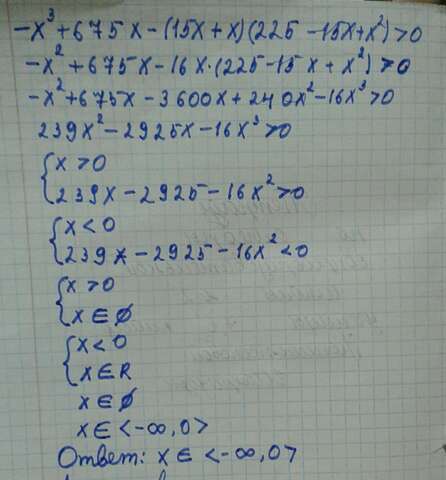 -x³+675x-(15x+x)(225-15x+x²)>0
-x²+675x-16x·(225-15x+x²)>0
-x²+675x-3600x+240x²-16x³>0
239x²-2925x-16x³>0
{x>0
239x-2925-16x²>0
{x<0
239x-2925-16x²<0
{x>0
x∈∅
{x<0
x∈R
x∈∅
x∈<-∞,0>
Ответ: x∈<-∞,0>